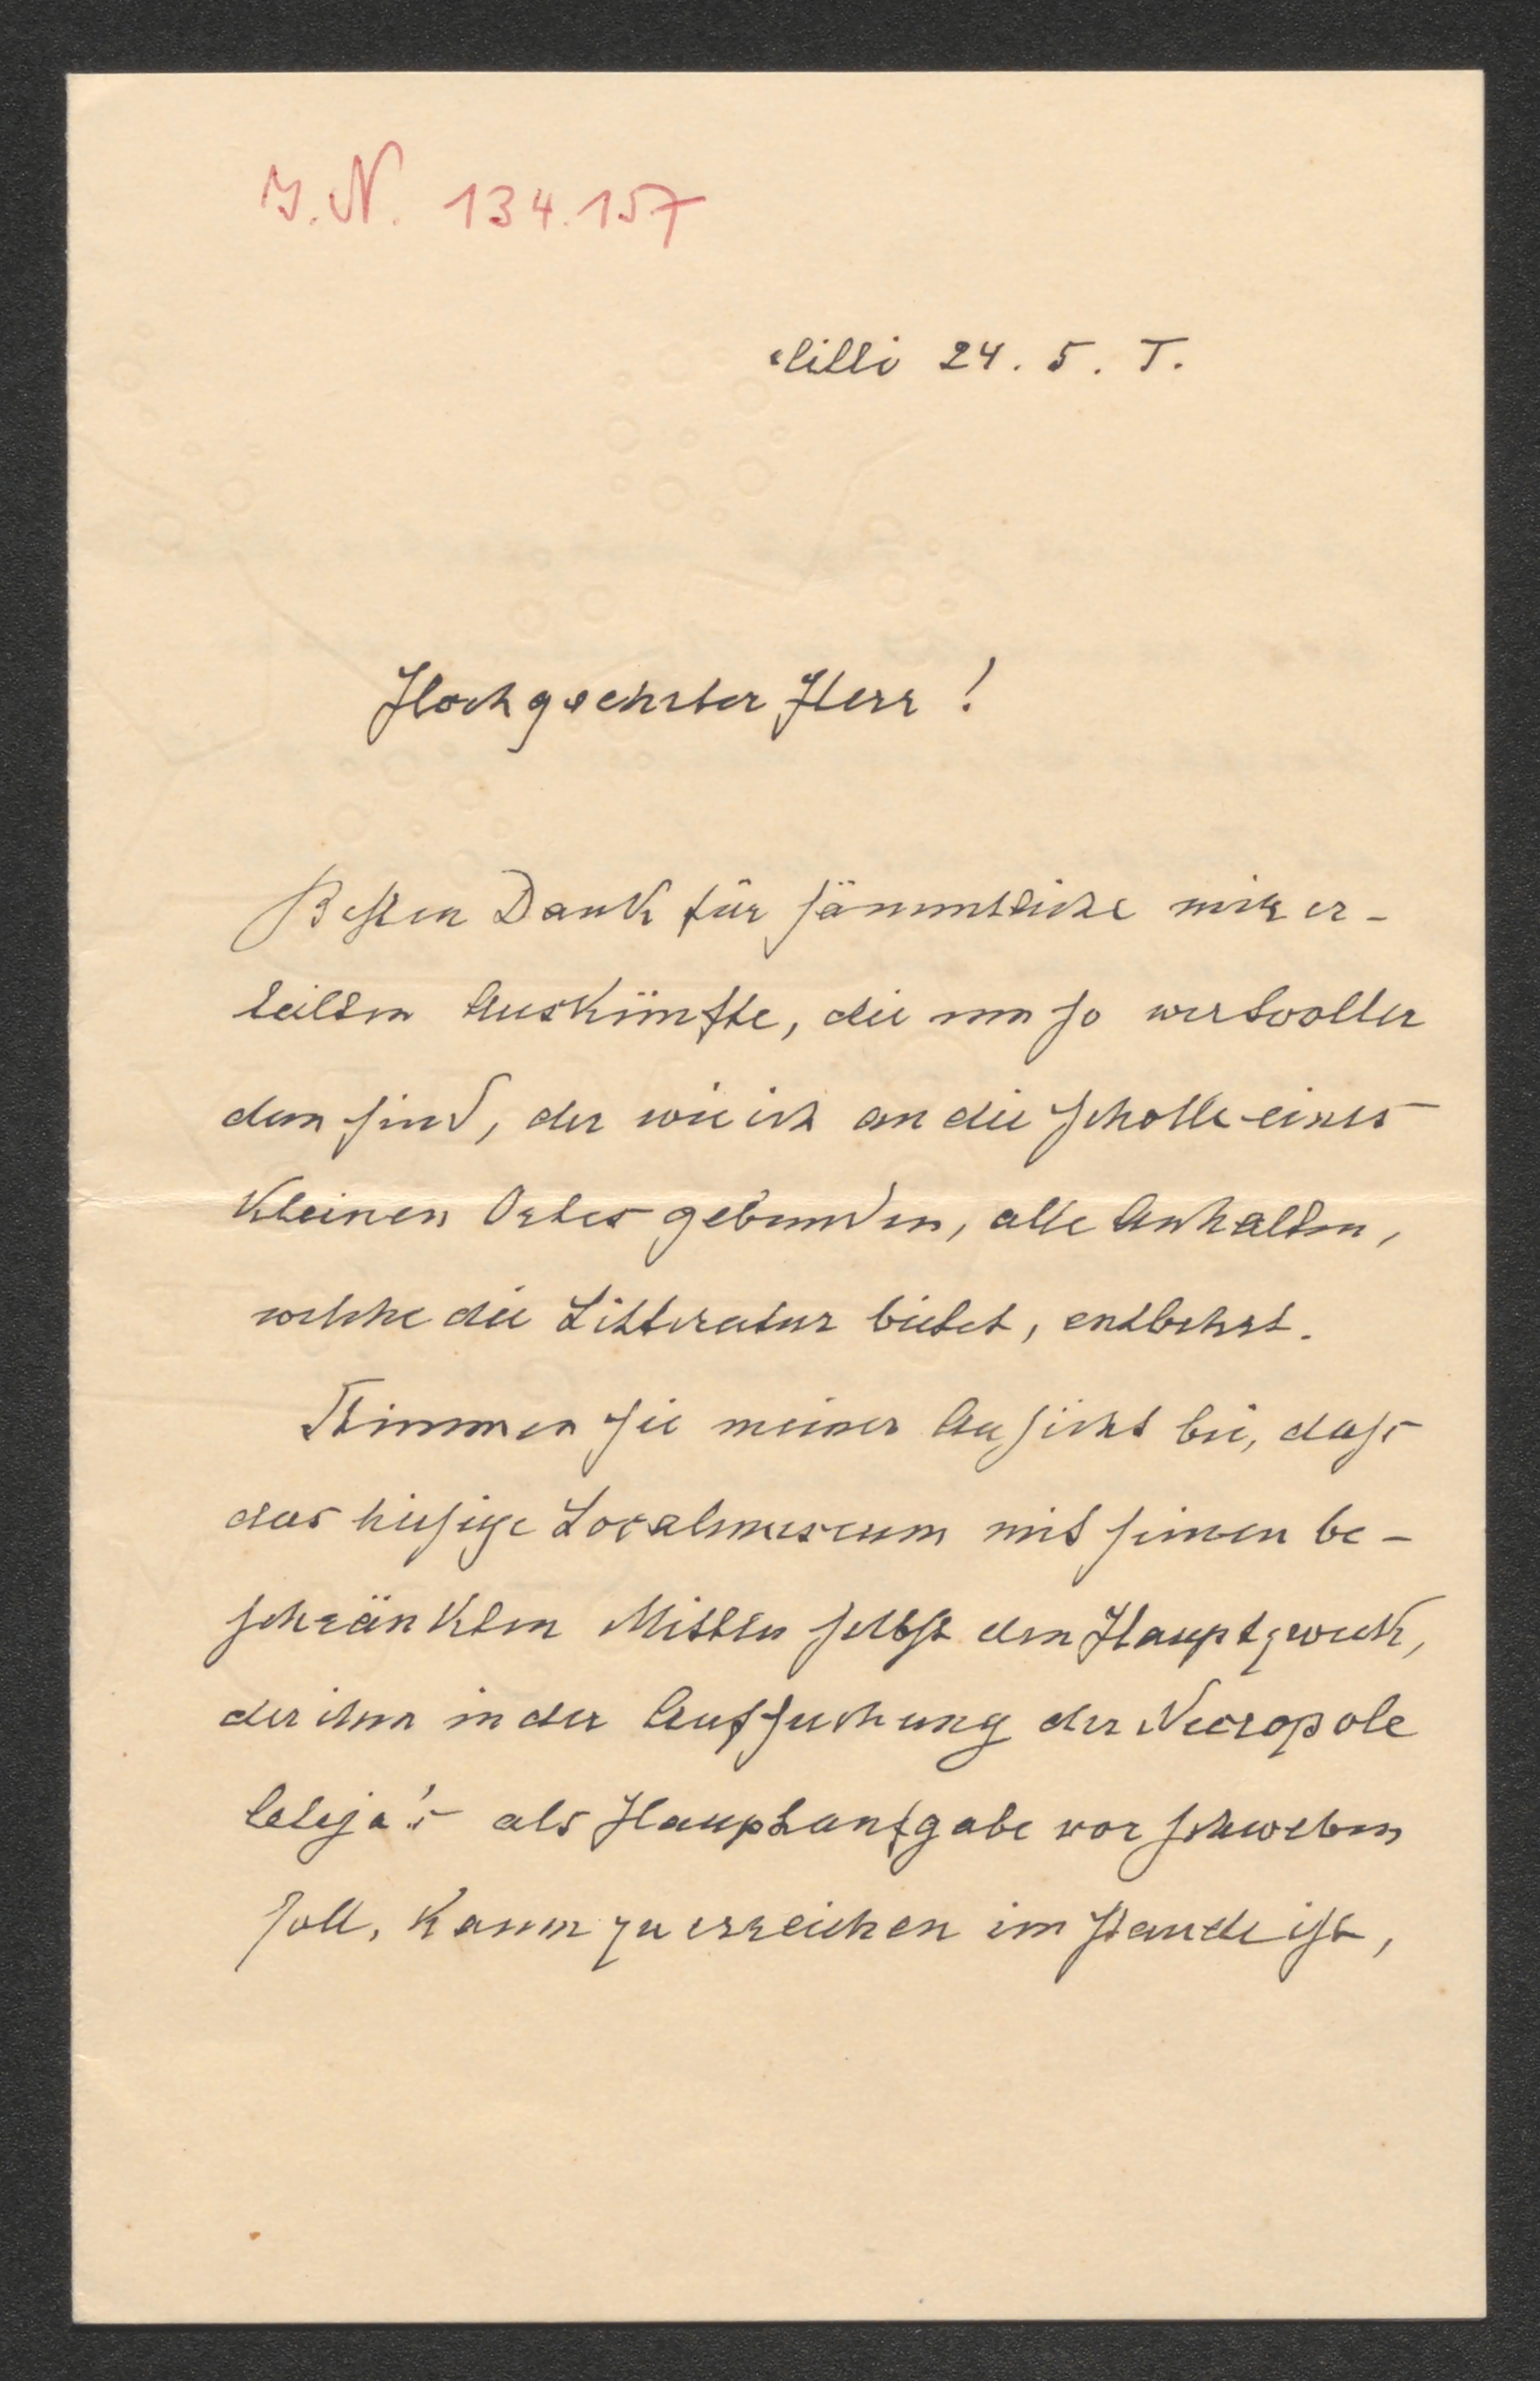 I.N. 134.157
Cilli 24. 5. T.
Hochgeehrter Herr!
Besten Dank für sämmtliche mir er-
teilten Auskünfte, die um so wertvoller
dem sind, der wie ich an die Scholle eines
kleinen Ortes gebunden, alle Anhalten,
welche die Litteratur bietet, entbehrt.
Stimmen Sie meiner Ansicht bei, dass
das hiesige Localmuseum mit seinen be-
schränkten Mitteln selbst den Hauptzweck,
der ihm in der Aufsuchung der Necropole
Celeja's als Hauptaufgabe vor schweben
soll, kaum zu erreichen im Stande ist,